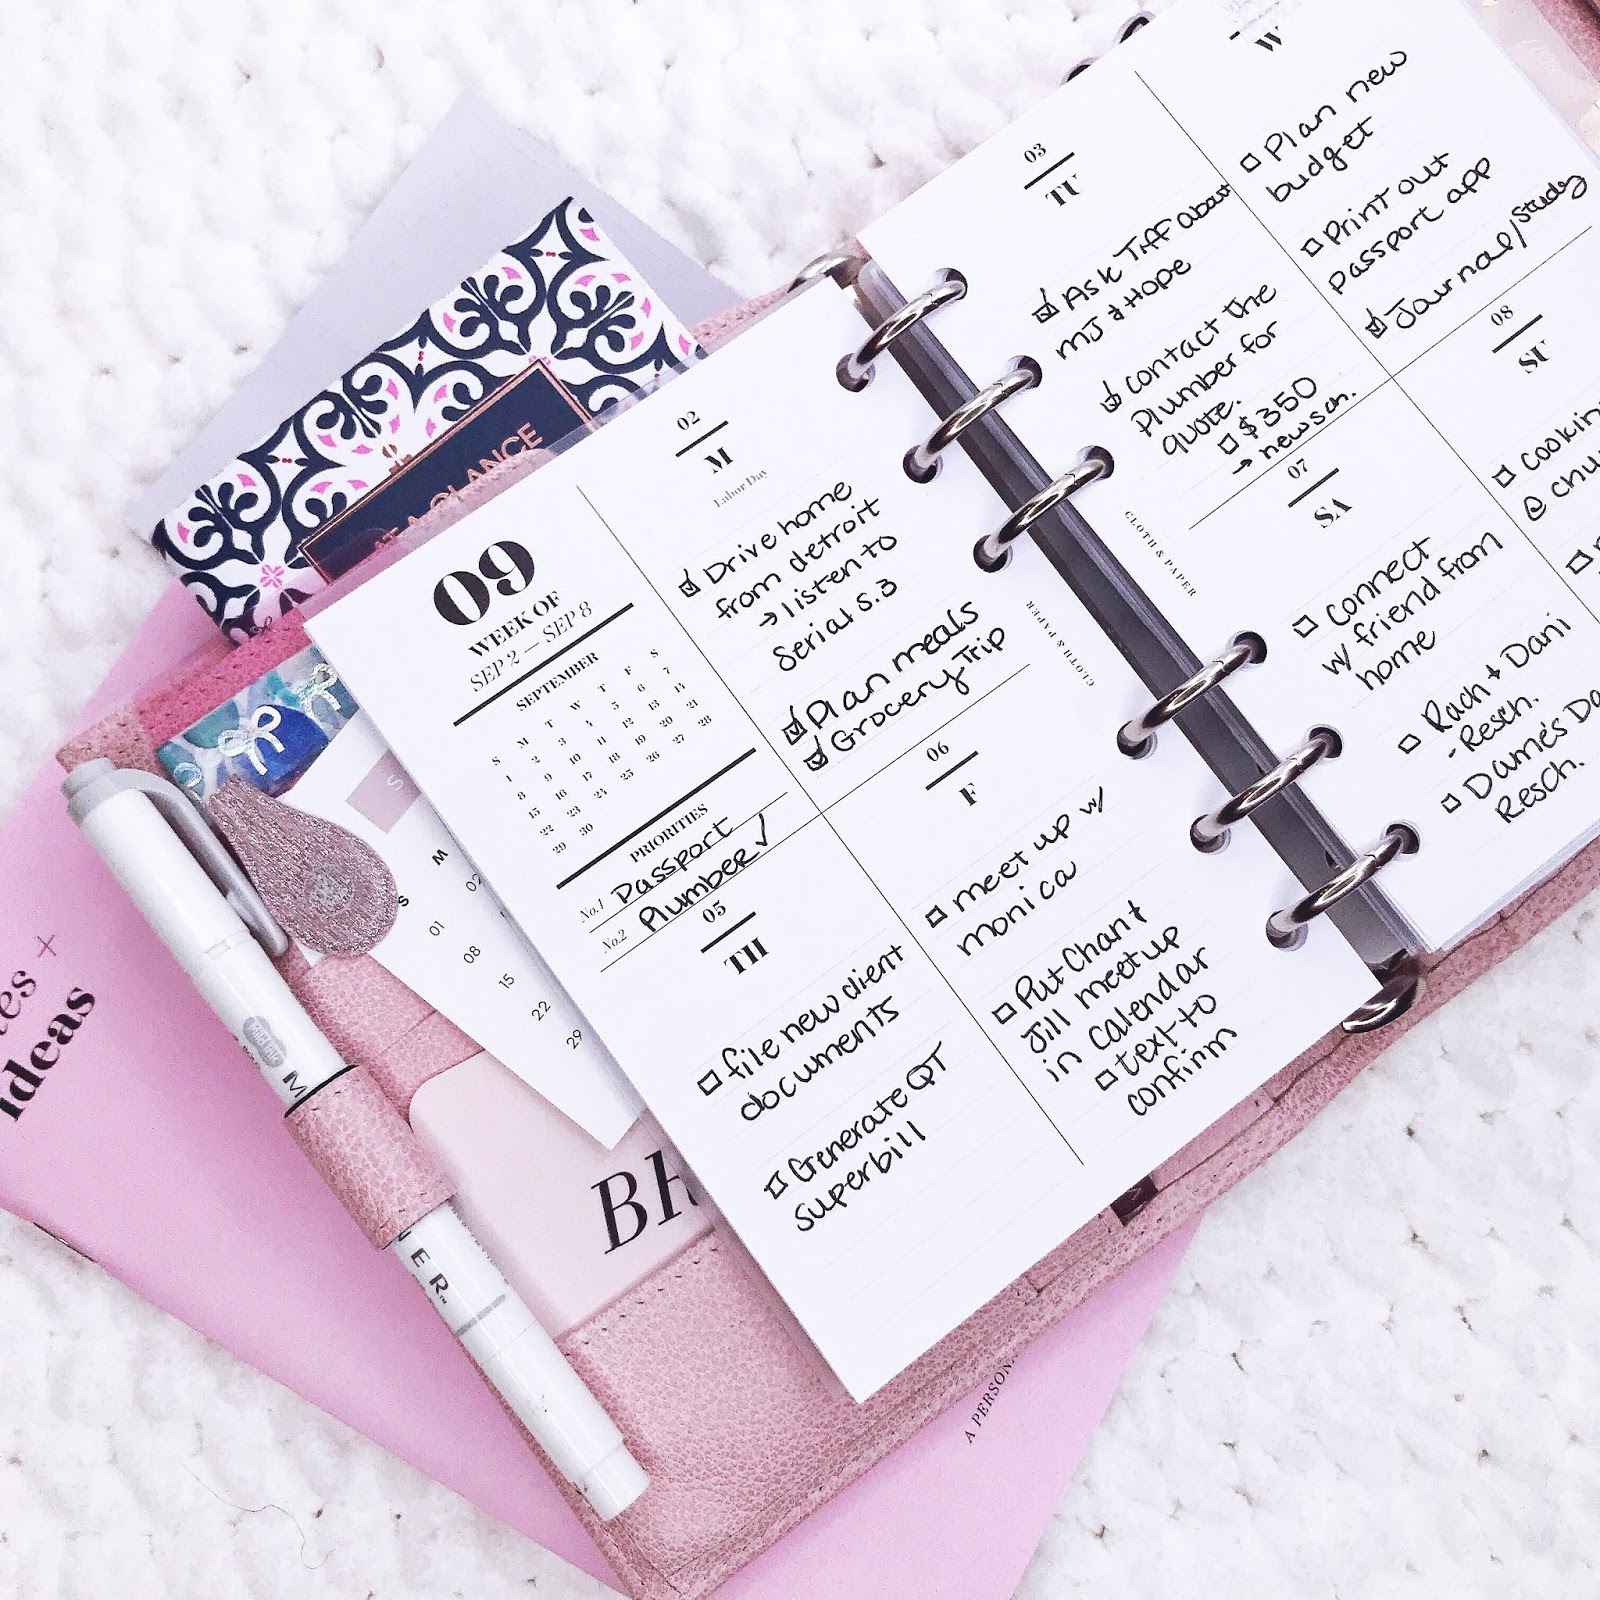 09
WEEK OF
SEP 2 — SEP 8
SEPTEMBER
S M T W T F S
1 2 3 4 5 6 7
8 9 10 11 12 13 14
15 16 17 18 19 20 21
22 23 24 25 26 27 28
29 30
PRIORITIES
No.1 Passport
No.2 Plumber ✓
02
M
Labor Day
☑ Drive home
from detroit
→ listen to
Serial S.3
☑ Plan meals
☑ Grocery Trip
05
TH
☐ file new client
documents
☐ Generate QT
superbill
06
F
☐ meet up w/
monica
☐ Put Chan &
Jill meet up
in calendar
☐ text to
confirm
CLOTH & PAPER
03
TU
☑ Ask Tiff about
MJ & Hope
☑ Contact the
Plumber for
quote.
☐ $350
→ new sch.
W
☐ Plan new
budget
☐ Print out
passport app
☑ Journal/Study
07
SA
☐ Connect
w/ friend from
home
☐ Rach + Dani
- Resch.
☐ Dame's Da
Resch.
08
SU
☐ Cookin
@ chu
CLOTH & PAPER
AT A GLANCE
S
W
S
02
01
08
15
22
29
BR
es +
ideas
M
NER™
A PERSON